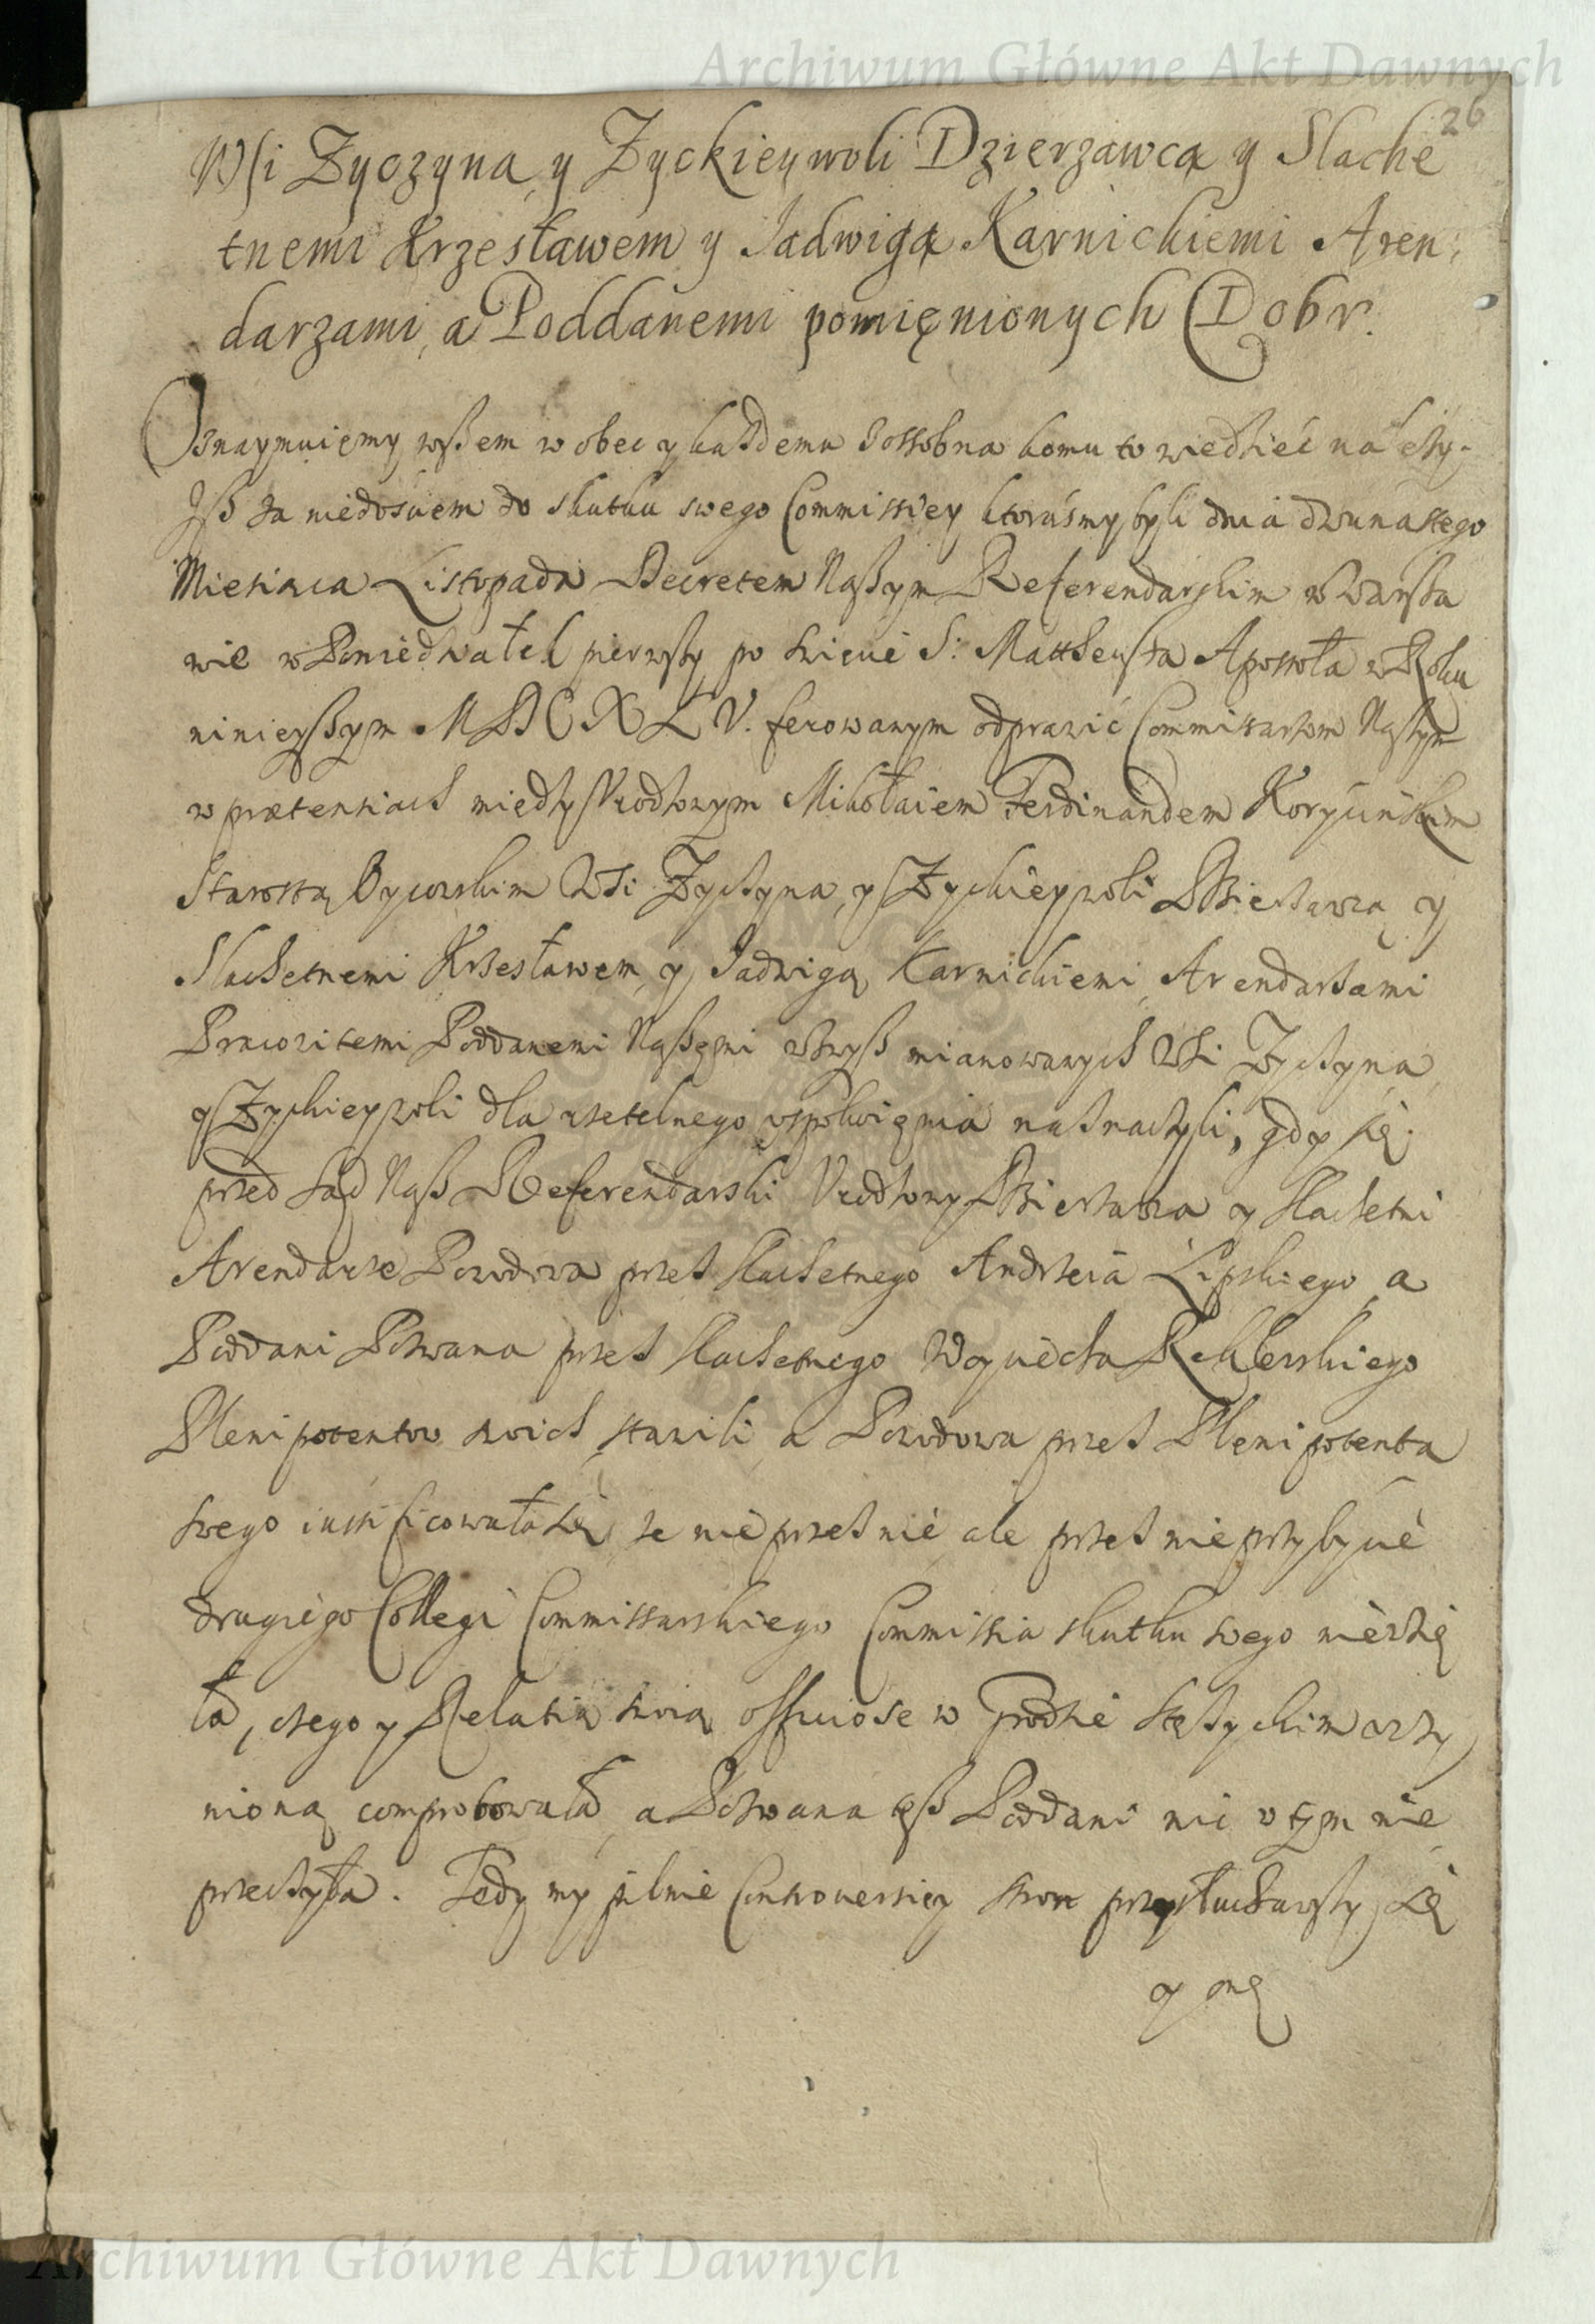 Archiwum Główne Akt Dawnych
26
Wsi Zyczyna, y Zyckieywoli Dzierzawcą y Slache
tnemi Krzesławem y Jadwigą Karnickiemi Aren:
darzami, a Poddanemi pomięnionych Dobr.
Oznaymuiemy wszem w obec y kazdemu zossobna komu to wiedziec nalezy.
Isz za niedosciem do skutku swego Commissiey ktorąsmy byli dnia dwunastego
Miesiaca Listopada Decretem Naszym Referendarskim w Warsza
wie w Poniedziałek pierwszy po swięcie S: Mattheusza Apostoła w Roku
ninieyszym MDCXLV. ferowanym odprawić Commissarzom Naszym
w prætensiach między Urodzonym Mikołaiem Ferdinandem Korycinskim
Starostą Oycowskim Wsi Zyczyna, y Zyckieywoli Dzierzawcą y
Slachetnemi Krzesławem, y Jadwigą Karnickiemi Arendarzami
Pracowitemi Poddanemi Naszęmi zwysz mianowanych Wsi Zyczyna
y Zyckieywoli dla rzetelnego uspokoięnia naznaczyli, gdy się
przed Sąd Nasz Referendarski Urodzony Dzierzawca y Slachetni
Arendarze Powodowa przez Slachetnego Andrzeia Lipskiego a
Poddani Pozwana przez Slachetnego Woyciecha Reklewskiego
Plenipotentow swoich stawili a Powodowa przez Plenipotenta
swego iustificowała się ze nie przez nię ale przez nieprzybycie
drugiego Collegi Commissarskiego Commissia skutku swego niewzię
ła, czego y Relatią swoią officiose w Grodzie Stęzyckim uczy
nioną comprobowała a Pozwana tesz Poddani nic w tym nie
przeczyła. Tedy my pilnie Controuersiey stron przysłuchawszy się
y onę
Archiwum Główne Akt Dawnych